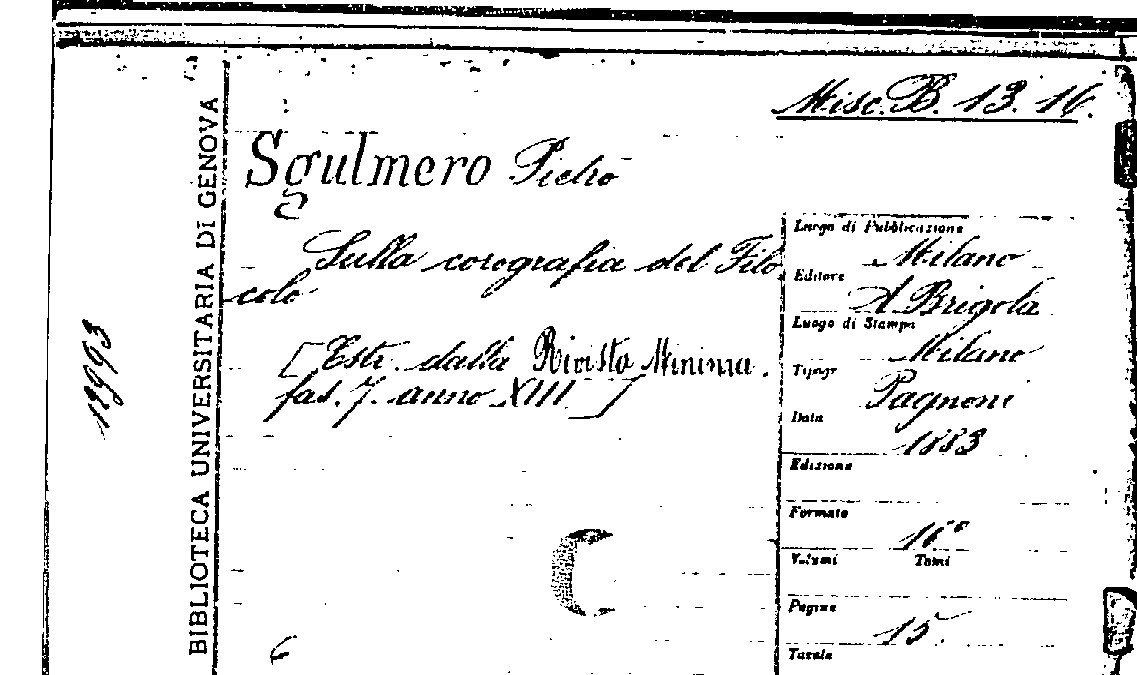 Misc. B. 13. 16.
Sgulmero Pietro
Sulla corografia del Filo
colo
[Estr. dalla Rivista Minima.
fas. 7. anno XIII]
Luogo di Pubblicazione
Milano
Editore
A Brigola
Luogo di Stampa
Milano
Tipogr
Pagnoni
Data
1883
Edizione
Formato
16°
Volumi Tomi
Pagine
15.
Tavole
BIBLIOTECA UNIVERSITARIA DI GENOVA